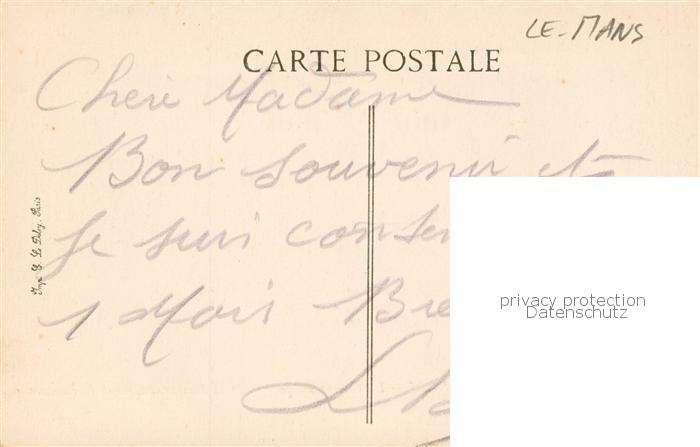 LE-MANS
CARTE POSTALE
Chere Madame
Bon souvenir et
Je suis
1 Mois
Imp. E. Le Deley, Paris
privacy protection
Datenschutz